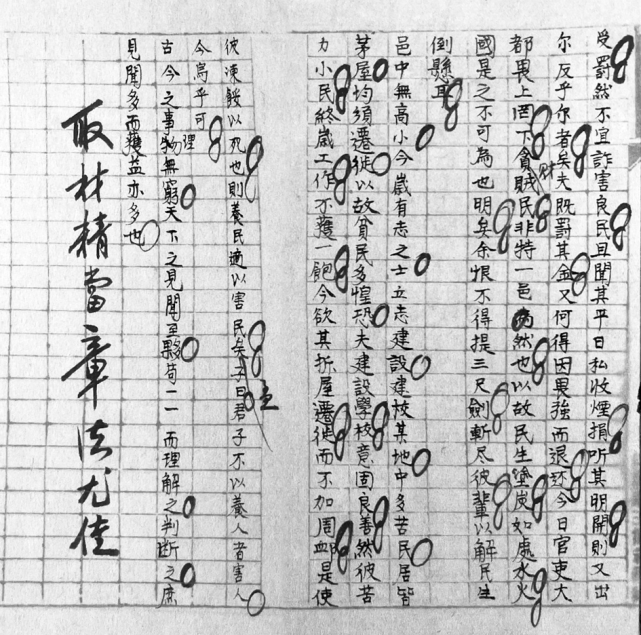 受罰然不宜詐害良民且聞其平日私收煙捐所其明開則又出
尔反乎尔者矣夫既罰其金又何得因畏強而退还今日官吏大
都畏上罔下貪財賊民非特一邑為然也以故民生塗炭如處水火
國是之不可為也明矣余恨不得提三尺劍斬尽彼輩以解民生
倒懸耳
邑中無高小今歲有志之士立志建設建校某地中多苦民居皆
茅屋均須遷徙以故貧民多惶恐夫建設學校意固良善然彼苦
力小民終歲工作不獲一飽今欲其折屋遷徙而不加周卹是使
彼凍餒以死也則養民適以害民矣孟子曰君子不以養人者害人
今烏乎可
古今之事物理無窮天下之見聞至夥苟一一而理解之判断之庶
見聞多而獲益亦多也
取材精當章法尤佳